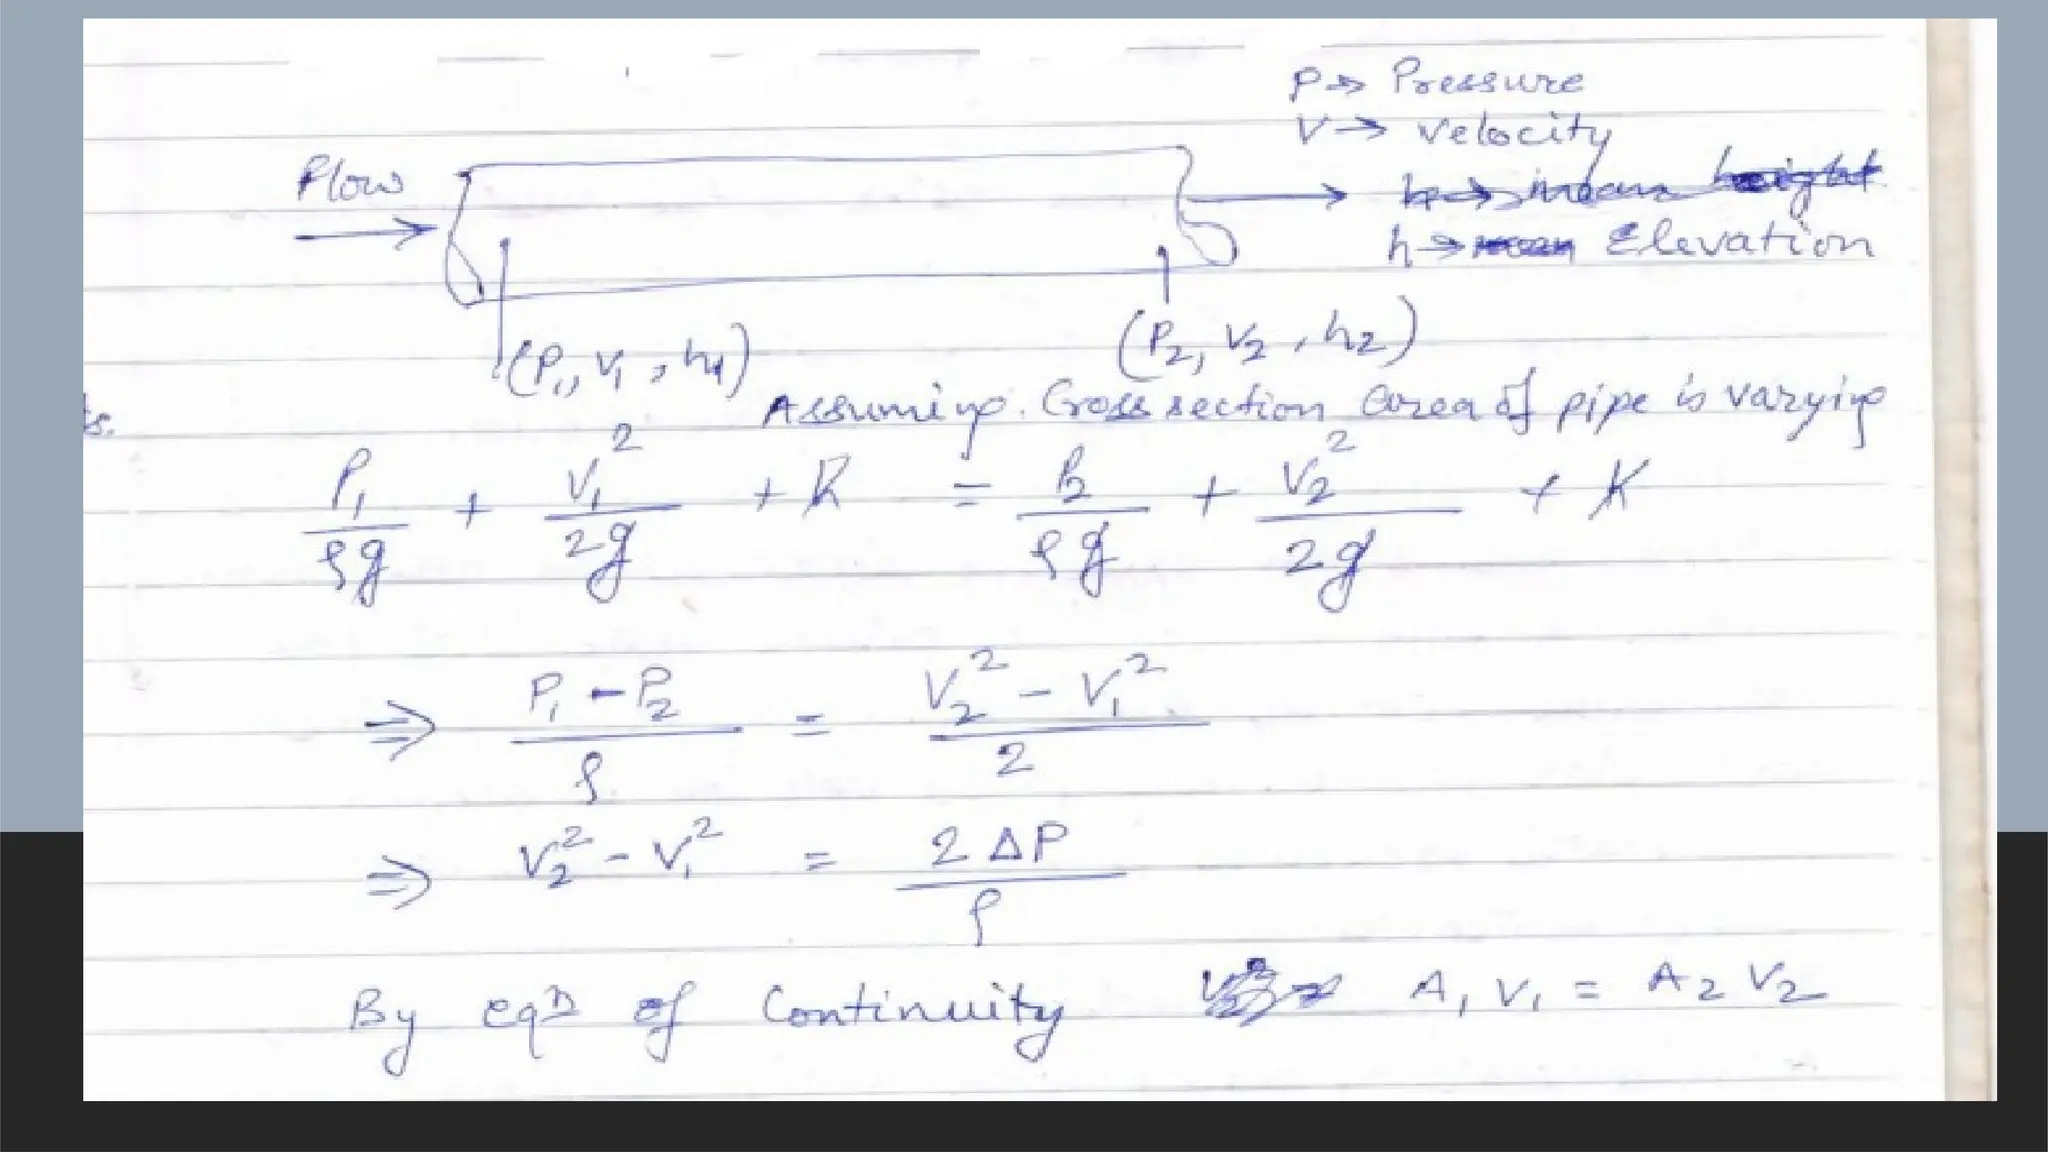 P → Pressure
V → Velocity
Flow
h → Elevation
(P₁, V₁, h₁)
(P₂, V₂, h₂)
ts.
Assuming Cross section area of pipe is varying
P₁/ρg + V₁²/2g + h = P₂/ρg + V₂²/2g + h
⇒ P₁ - P₂/ρ = V₂² - V₁²/2
⇒ V₂² - V₁² = 2 ΔP/ρ
By eqn of Continuity A₁ V₁ = A₂ V₂